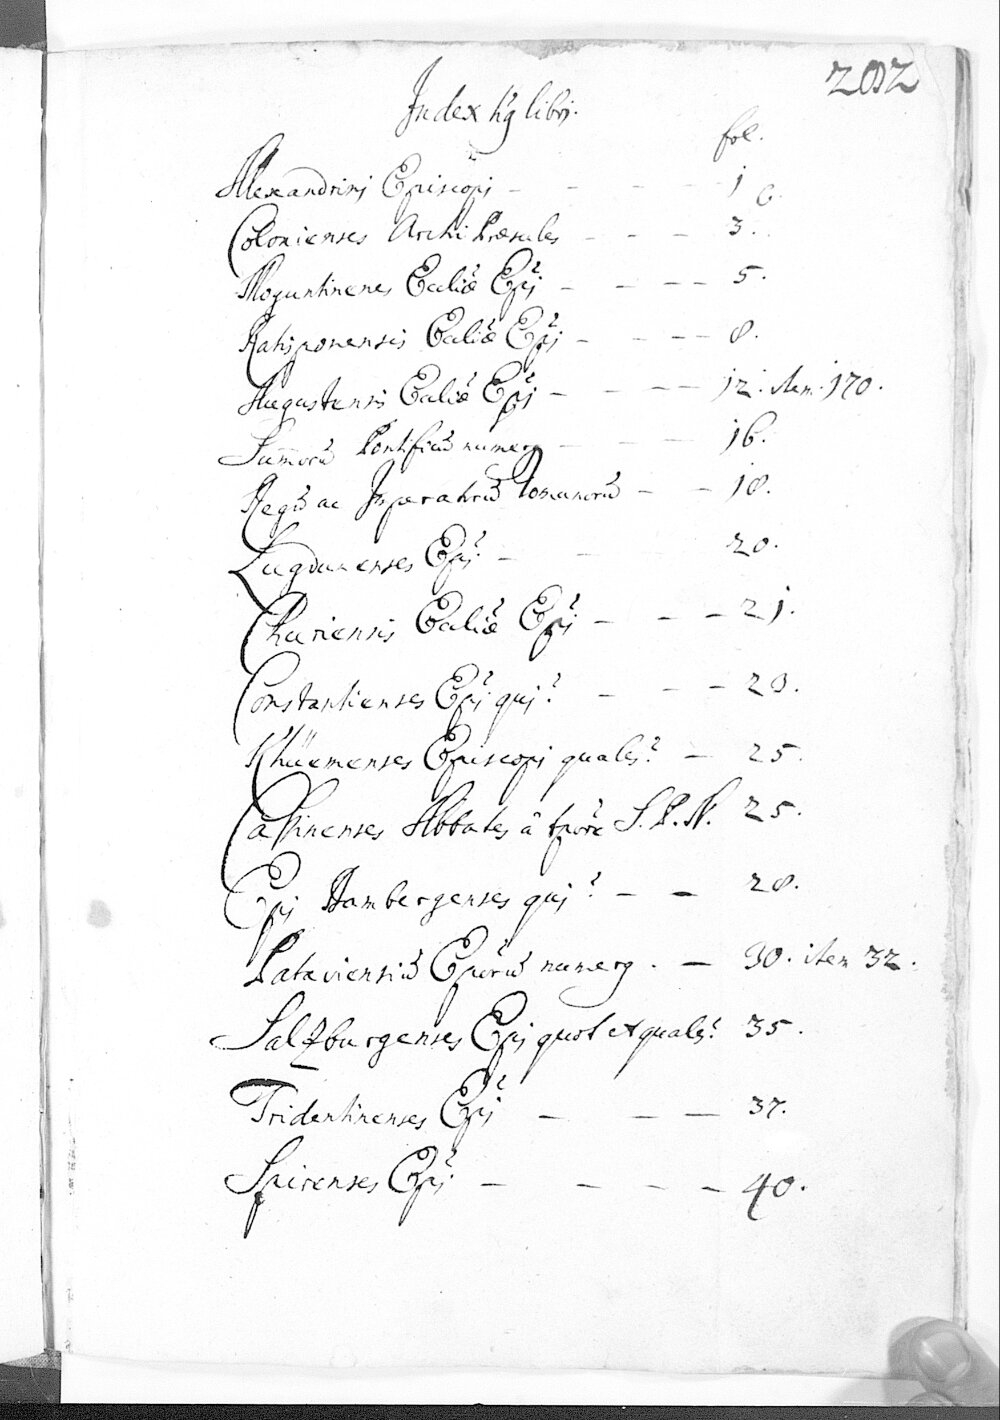 202
Index h'g libri.
fol.
Alexandrini Episcopi - - - - 1
Colonienses Archi Præsules - - - 3.
Moguntinenes Ecaliæ Epi - - - - 5.
Ratisponensis Ecaliæ Epi - - - - 8.
Augustensis Ecaliæ Epi - - - - 12. item. 170.
Summorū Pontificū numerq - - - 16.
Regū ac Imperatorū Romanorū - - 18.
Lugdunenses Epi - - - 20.
Churiensis Ecaliæ Epi - - - 21.
Constantienses Epi qui? - - - 23.
Khüemenses Episcopi quales? - 25.
Cassinenses Abbates â tpore S. P. N. 25.
Epi Bambergenses qui? - - 28.
Pataviensiū Epōrū numerq. - 30. item 32.
Saltzburgenses Epi quot et quales? 35.
Tridentinenses Epi - - - 37.
Spirenses Epi - - - - 40.